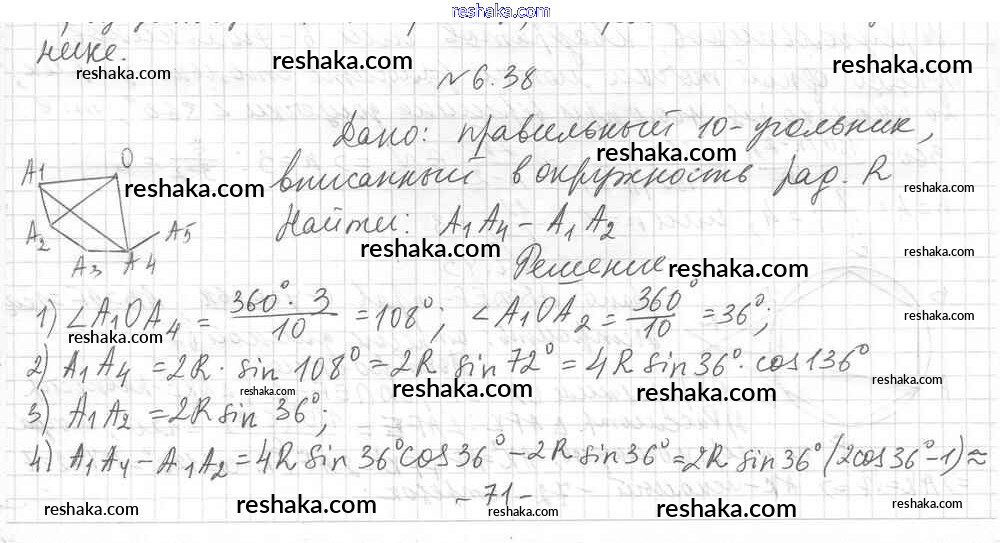 reshaka.com
нике.
reshaka.com
reshaka.com
reshaka.com
№ 6.38
Дано: правильный 10-угольник,
reshaka.com
вписанный в окружность рад. R
reshaka.com
Найти: A1A4 – A1A2
reshaka.com
A1
O
A2
A3
A4
A5
Решение
reshaka.com
1) ∠A1OA4 = 360°·3/10 = 108°; ∠A1OA2 = 360°/10 = 36°;
reshaka.com
reshaka.com
2) A1A4 = 2R · sin 108° = 2R sin 72° = 4R sin 36° · cos 136°
reshaka.com
reshaka.com
reshaka.com
reshaka.com
3) A1A2 = 2R sin 36°;
reshaka.com
4) A1A4 – A1A2 = 4R sin 36° cos 36° – 2R sin 36° = 2R sin 36° (2cos 36° – 1) ≈
reshaka.com
reshaka.com
- 71 -
reshaka.com
reshaka.com
reshaka.com